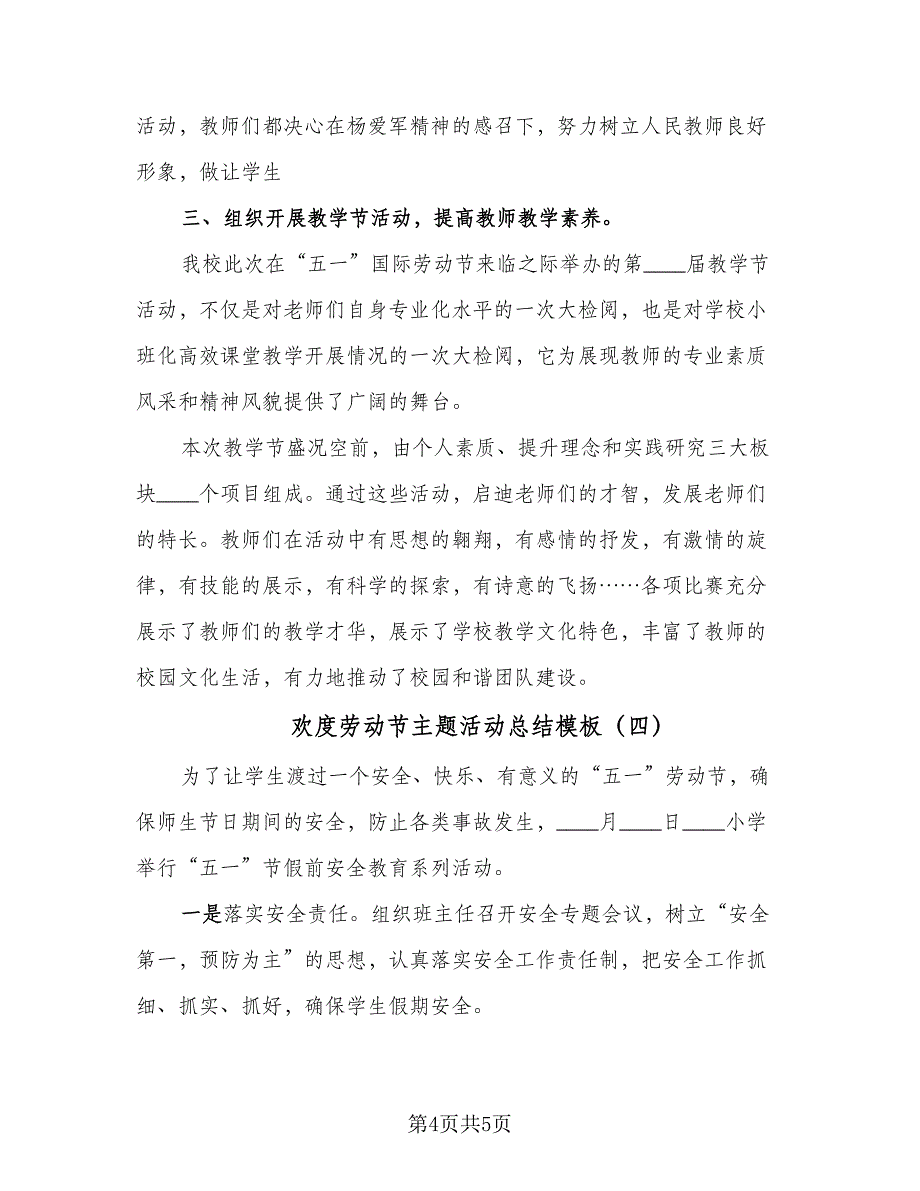 活动，教师们都决心在杨爱军精神的感召下，努力树立人民教师良好
形象，做让学生
三、组织开展教学节活动，提高教师教学素养。
我校此次在“五一”国际劳动节来临之际举办的第____届教学节
活动，不仅是对老师们自身专业化水平的一次大检阅，也是对学校小
班化高效课堂教学开展情况的一次大检阅，它为展现教师的专业素质
风采和精神风貌提供了广阔的舞台。
本次教学节盛况空前，由个人素质、提升理念和实践研究三大板
块____个项目组成。通过这些活动，启迪老师们的才智，发展老师们
的特长。教师们在活动中有思想的翱翔，有感情的抒发，有激情的旋
律，有技能的展示，有科学的探索，有诗意的飞扬……各项比赛充分
展示了教师们的教学才华，展示了学校教学文化特色，丰富了教师的
校园文化生活，有力地推动了校园和谐团队建设。
欢度劳动节主题活动总结模板（四）
为了让学生渡过一个安全、快乐、有意义的“五一”劳动节，确
保师生节日期间的安全，防止各类事故发生，____月____日____小学
举行“五一”节假前安全教育系列活动。
一是落实安全责任。组织班主任召开安全专题会议，树立“安全
第一，预防为主”的思想，认真落实安全工作责任制，把安全工作抓
细、抓实、抓好，确保学生假期安全。
第4页共5页